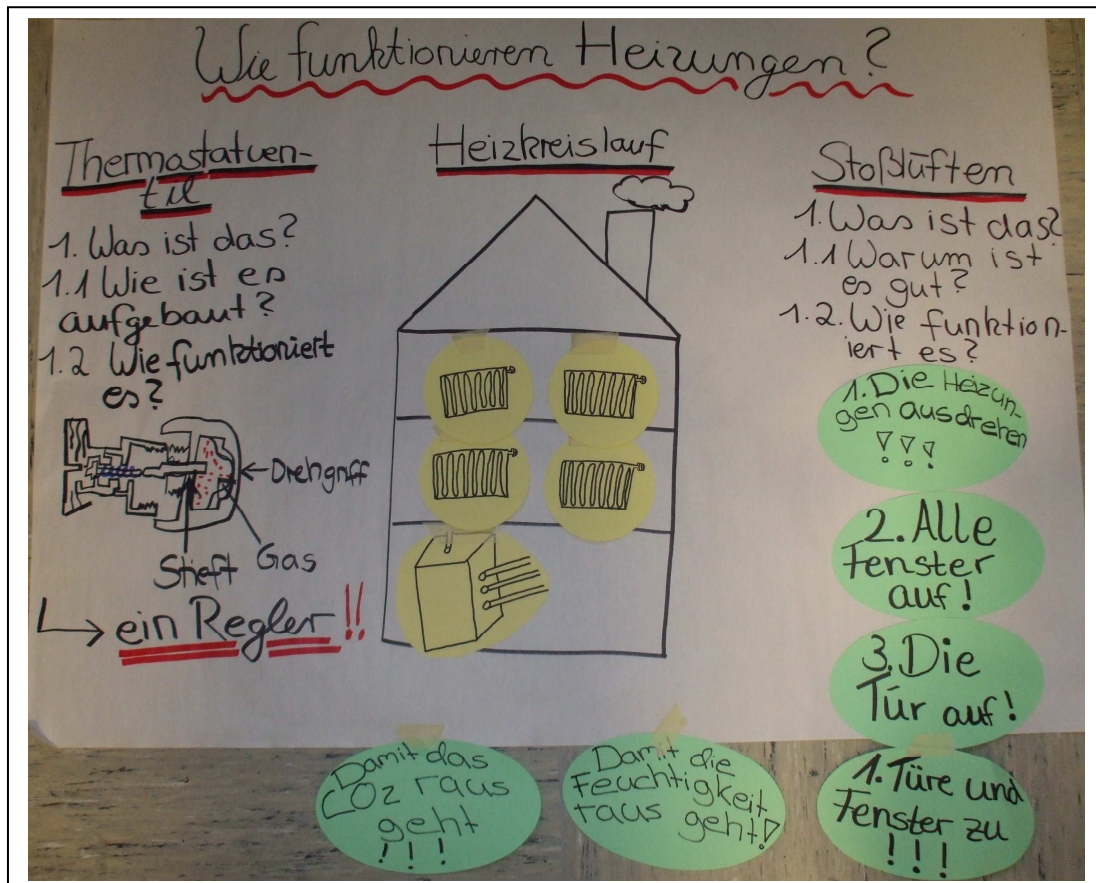 Wie funktionieren Heizungen?
Thermostatven-
til
1. Was ist das?
1.1 Wie ist es
aufgebaut?
1.2 Wie funktioniert
es?
Drehgriff
Stieft
Gas
ein Regler!!
Heizkreislauf
Stoßlüften
1. Was ist das?
1.1 Warum ist
es gut?
1.2. Wie funktion-
iert es?
1. Die Heizun-
gen ausdrehen
!!!
2. Alle
Fenster
auf!
3. Die
Tür auf!
1. Türe und
Fenster zu
!!!
Damit das
CO2 raus
geht
!!!
Damit die
Feuchtigkeit
raus geht!